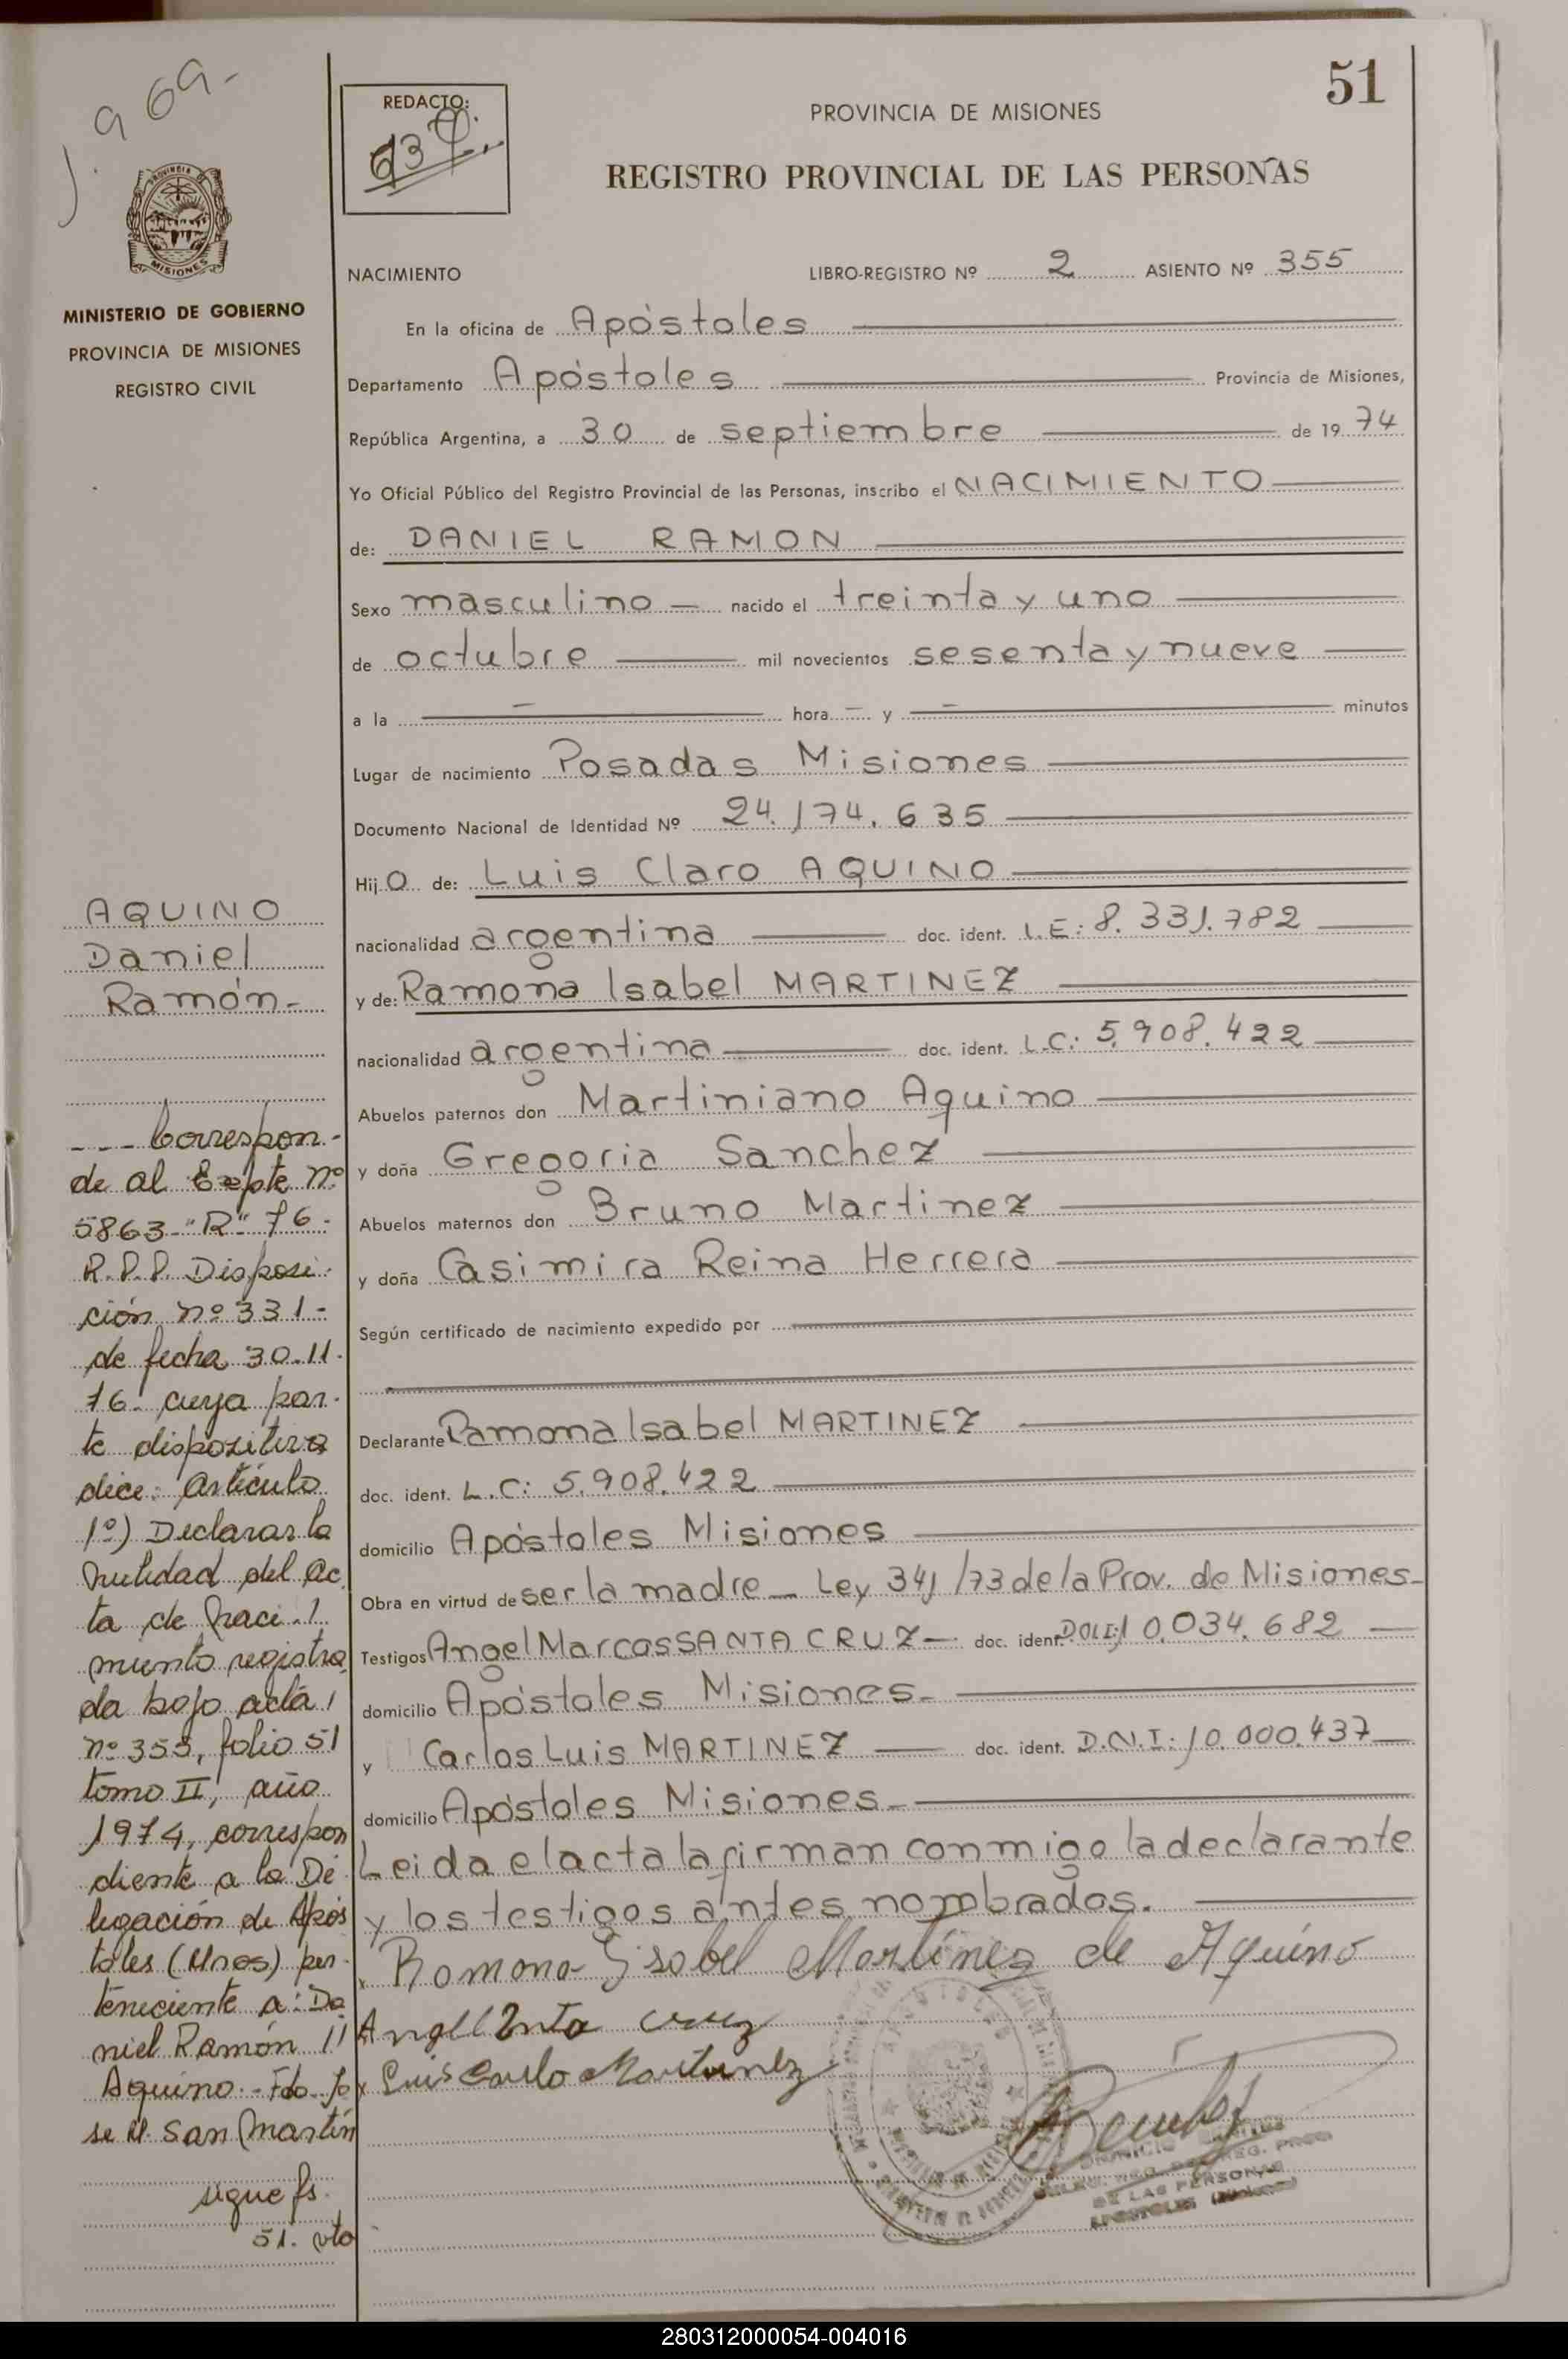 1969-
51
REDACTO:
PROVINCIA DE MISIONES
REGISTRO PROVINCIAL DE LAS PERSONAS
PROVINCIA DE
MISIONES
MINISTERIO DE GOBIERNO
PROVINCIA DE MISIONES
REGISTRO CIVIL
NACIMIENTO LIBRO-REGISTRO Nº 2 ASIENTO Nº 355
En la oficina de Apóstoles
Departamento Apóstoles Provincia de Misiones,
República Argentina, a 30 de septiembre de 1974
Yo Oficial Público del Registro Provincial de las Personas, inscribo el NACIMIENTO
de: DANIEL RAMON
Sexo masculino — nacido el treinta y uno
de octubre mil novecientos sesenta y nueve
a la — hora — y — minutos
Lugar de nacimiento Posadas Misiones
Documento Nacional de Identidad Nº 24.174.635
Hijo de: Luis Claro AQUINO
nacionalidad argentina doc. ident. L.E: 8.331.782
y de: Ramona Isabel MARTINEZ
nacionalidad argentina doc. ident. L.C: 5.908.422
Abuelos paternos don Martiniano Aquino
y doña Gregoria Sanchez
Abuelos maternos don Bruno Martinez
y doña Casimira Reina Herrera
Según certificado de nacimiento expedido por
Declarante Ramona Isabel MARTINEZ
doc. ident. L.C: 5.908.422
domicilio Apóstoles Misiones
Obra en virtud de ser la madre — Ley 341/73 de la Prov. de Misiones-
Testigos Angel Marcos SANTA CRUZ — doc. ident. 10.034.682
domicilio Apóstoles Misiones.-
y Carlos Luis MARTINEZ doc. ident. D.N.I: 10.000.437
domicilio Apóstoles Misiones.-
Leida el acta la firman conmigo la declarante
y los testigos antes nombrados.
Ramona Isabel Martínez de Aquino
Luis Carlo Martinez
REG. PROV
DE LAS PERSONAS
APOSTOLES
AQUINO
Daniel
Ramón-
--- Correspon-
de al Expte nº
5863-"R"-76-
R.P.P. Disposi-
ción nº 331-
de fecha 30-11-
76- cuya par-
te dispositiva
dice: Artículo
1º) Declarar la
nulidad del ac
ta de naci-
miento registra
da bajo acta
nº 355, folio 51
tomo II, año
1974, correspon
diente a la De
legación de Após
toles (Mnes) per-
teneciente a: Da
niel Ramón
Aquino.- Fdo. Jo
se M. San Martín
sigue fs.
51. vto
280312000054-004016